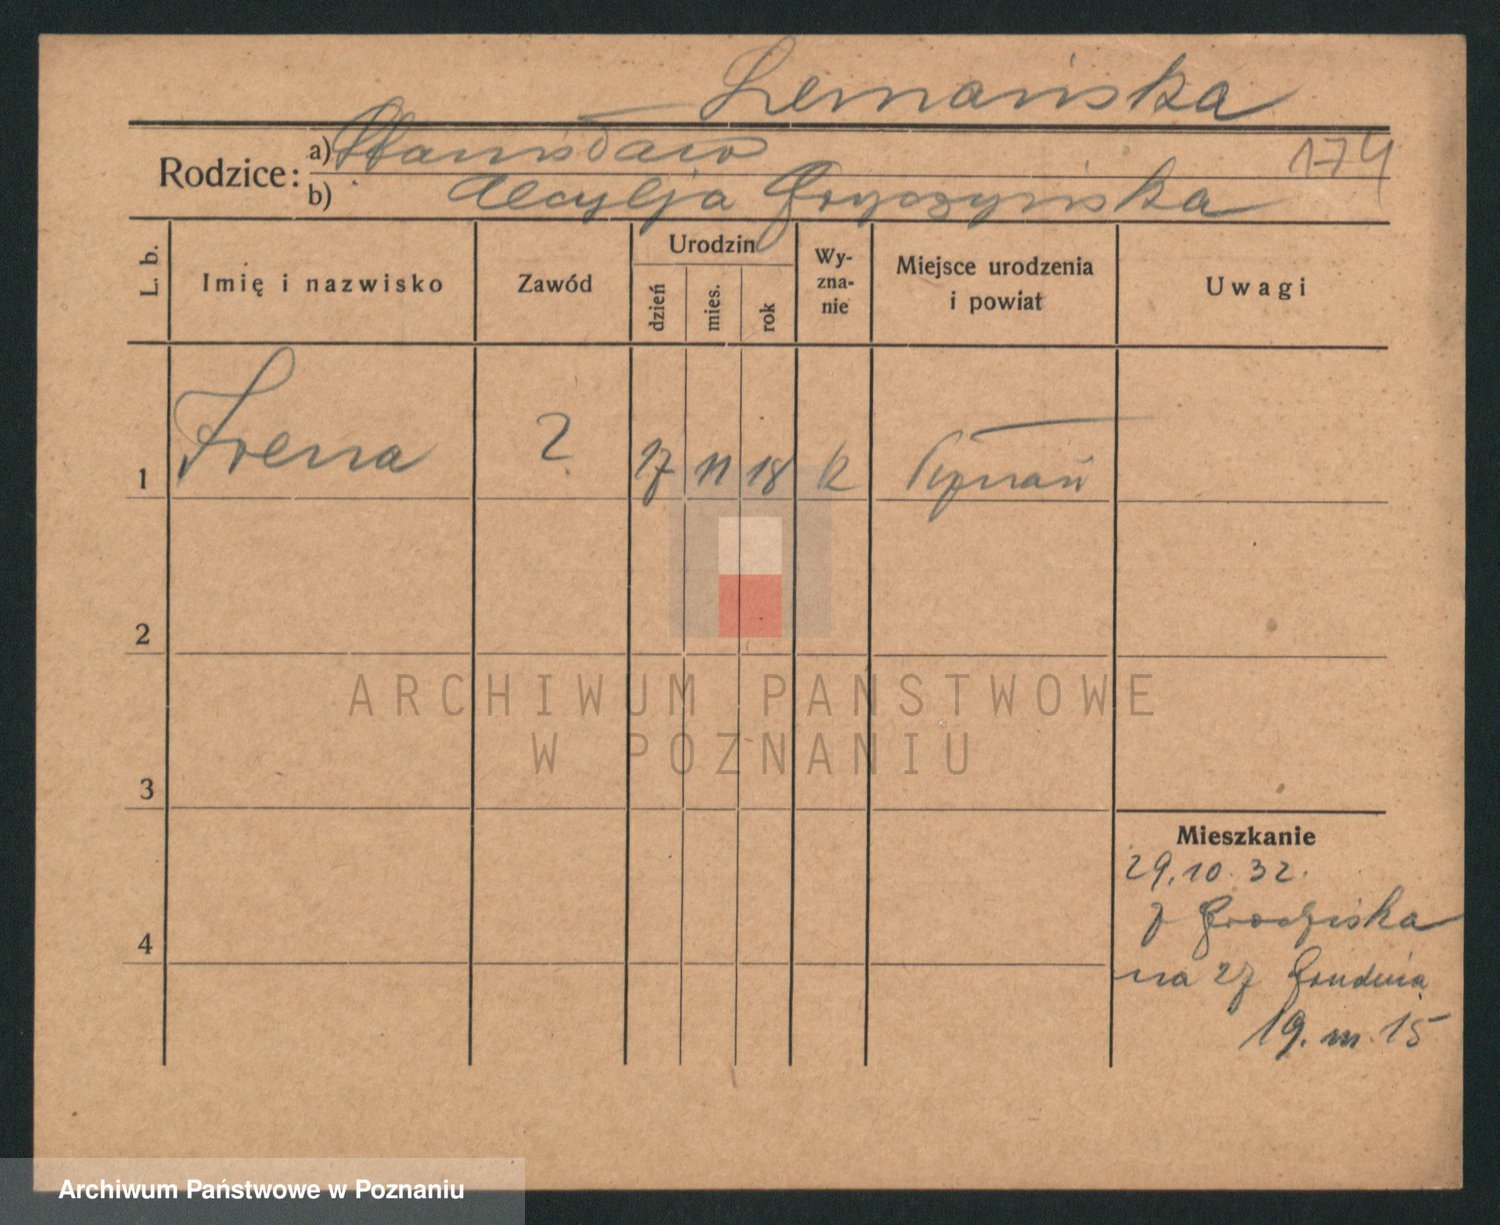 Lemańska
Rodzice:
a) Stanisław
174
b)
L. b.
Imię i nazwisko
Zawód
Urodzin
dzień
mies.
rok
Wy-
zna-
nie
Miejsce urodzenia
i powiat
Uwagi
1
Irena
?
17 11 18
Poznań
2
3
4
ARCHIWUM PAŃSTWOWE
W POZNANIU
Mieszkanie
29.10.32.
z Grodziska
na 27 Grudnia
19. m. 15
Archiwum Państwowe w Poznaniu